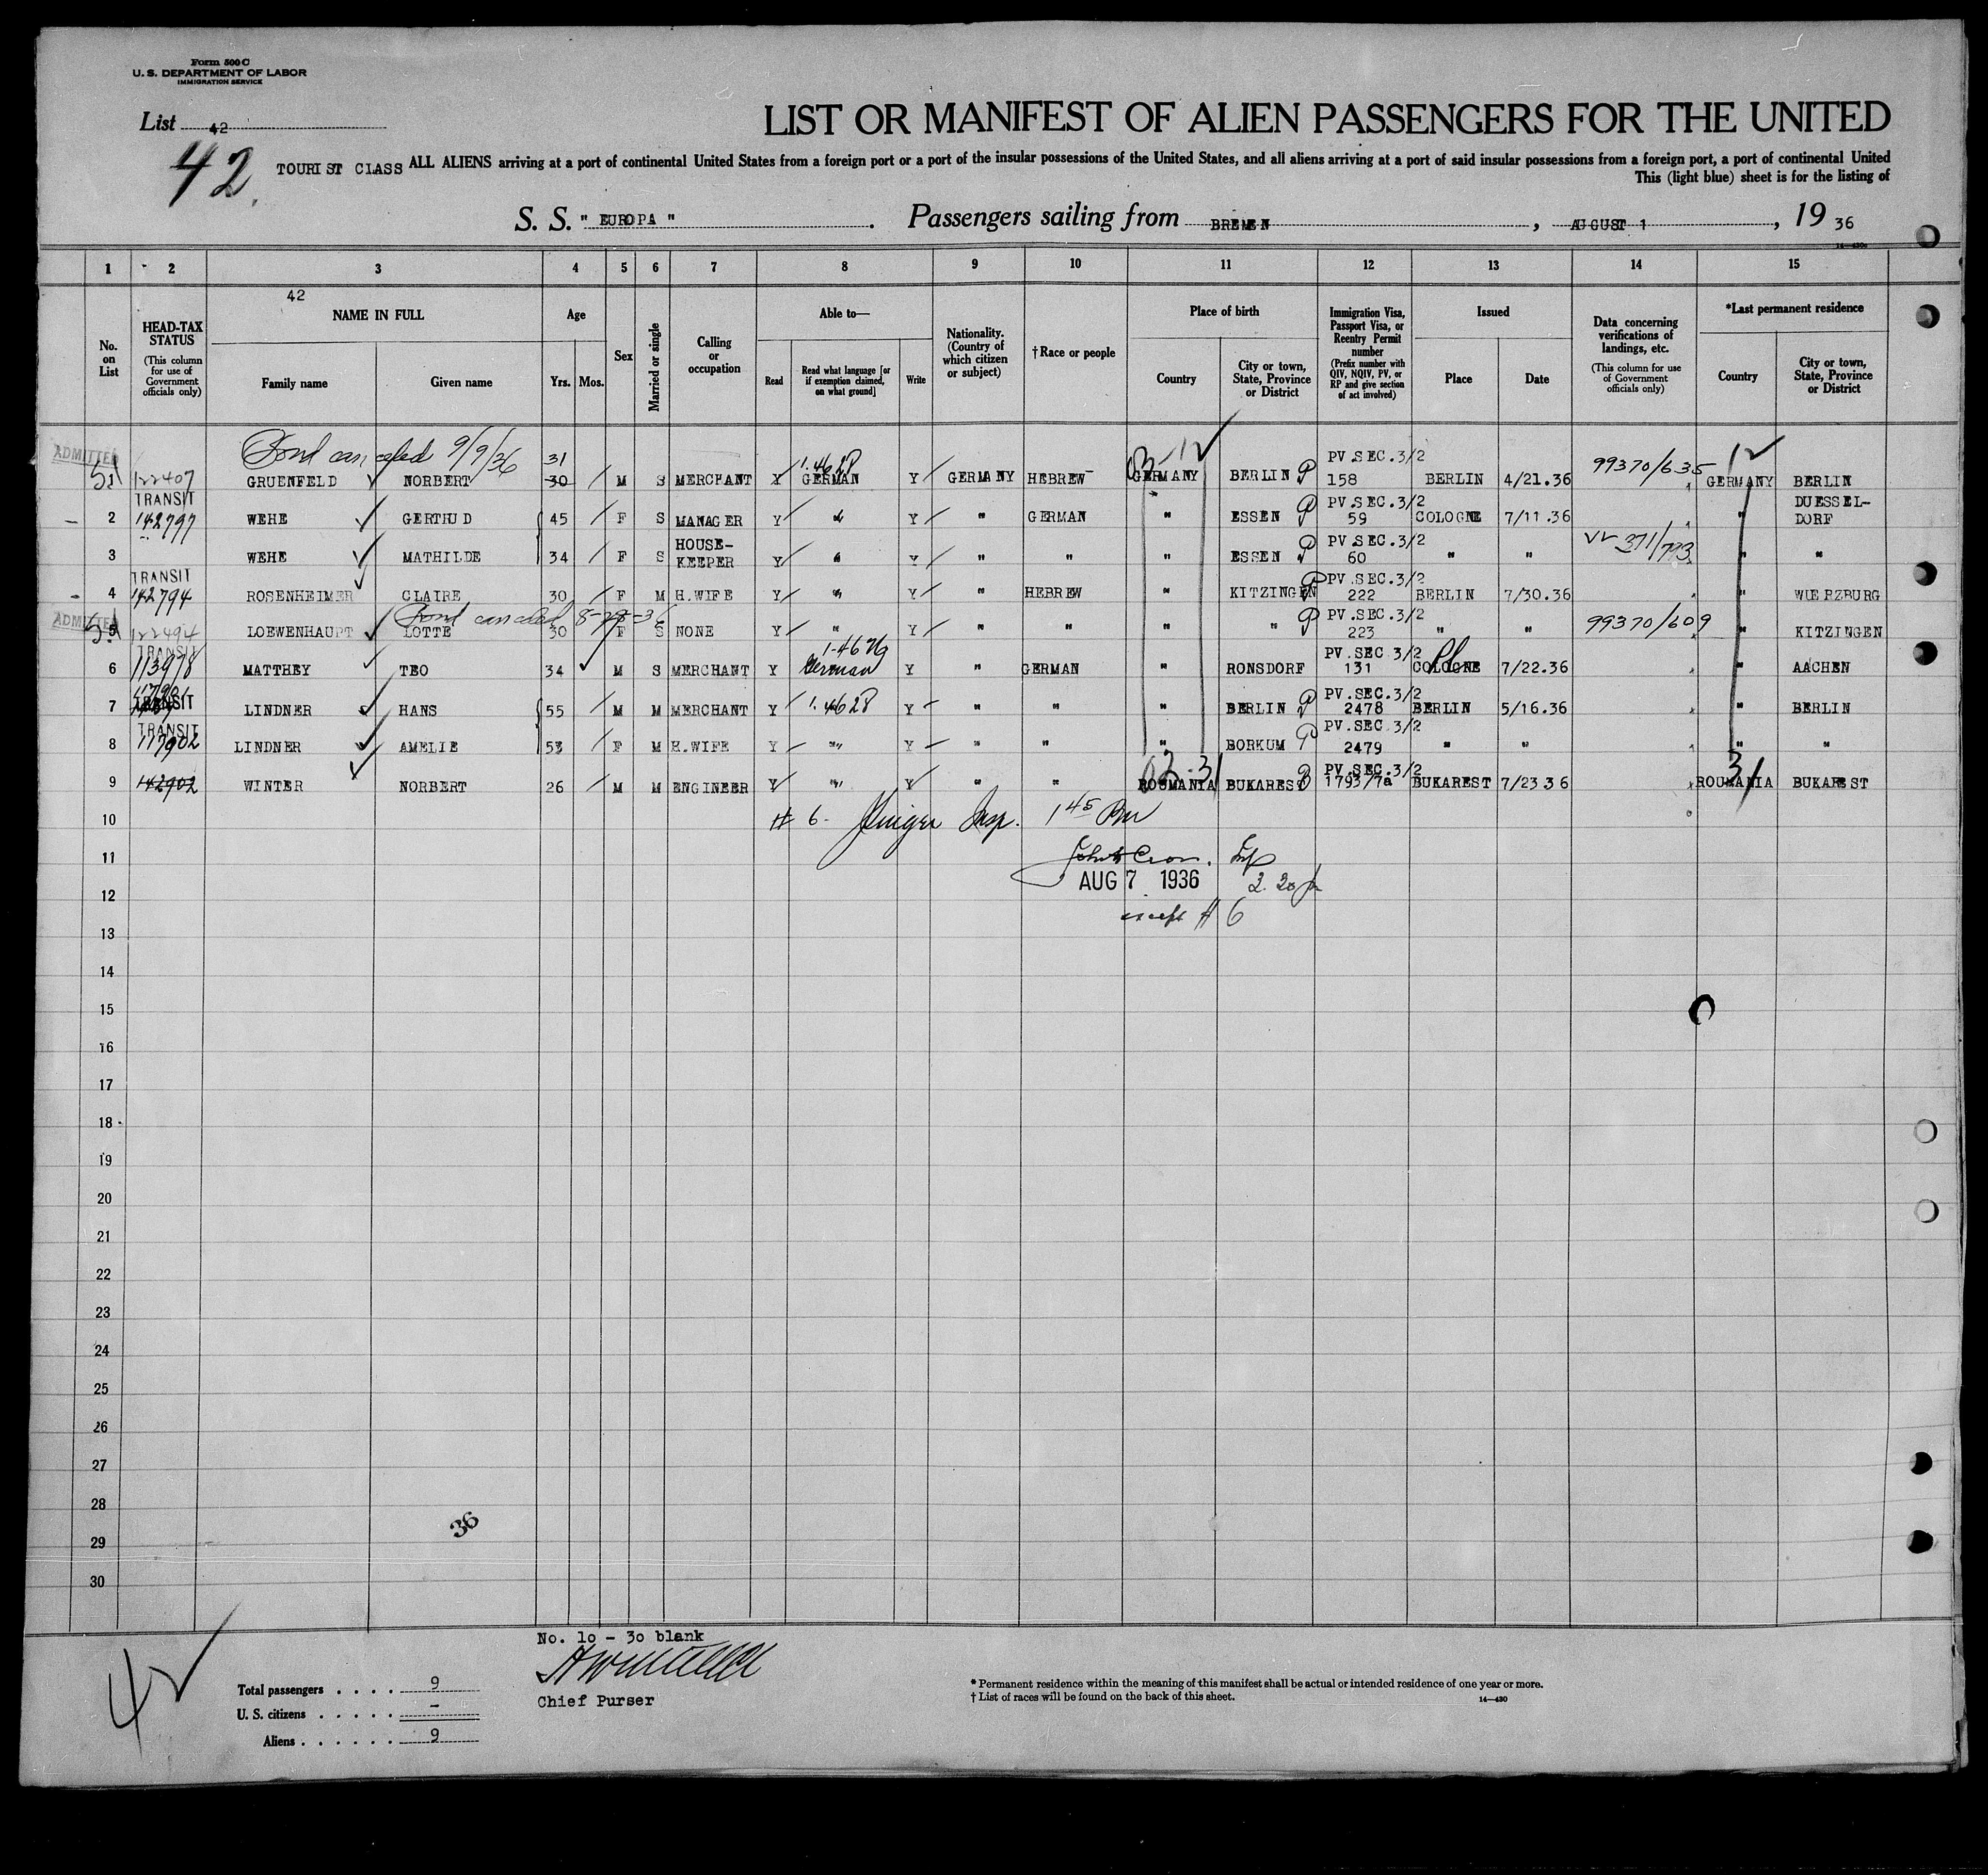 Form 500 C
U. S. DEPARTMENT OF LABOR
IMMIGRATION SERVICE
List 42
42.
LIST OR MANIFEST OF ALIEN PASSENGERS FOR THE UNITED
TOURIST CLASS ALL ALIENS arriving at a port of continental United States from a foreign port or a port of the insular possessions of the United States, and all aliens arriving at a port of said insular possessions from a foreign port, a port of continental United
This (light blue) sheet is for the listing of
S. S. " EUROPA ". Passengers sailing from BREMEN, AUGUST 1, 19 36
14—430a
1 2 3 4 5 6 7 8 9 10 11 12 13 14 15
No. on List
HEAD-TAX STATUS
(This column for use of Government officials only)
42
NAME IN FULL
Family name
Given name
Age
Yrs. Mos.
Sex
Married or single
Calling or occupation
Able to—
Read
Read what language [or if exemption claimed, on what ground]
Write
Nationality. (Country of which citizen or subject)
†Race or people
Place of birth
Country
City or town, State, Province or District
Immigration Visa, Passport Visa, or Reentry Permit number
(Prefix number with QIV, NQIV, PV, or RP and give section of act involved)
Issued
Place
Date
Data concerning verifications of landings, etc.
(This column for use of Government officials only)
*Last permanent residence
Country
City or town, State, Province or District
Bond cancelled 9/9/36
ADMITTED 122407 GRUENFELD NORBERT 31 30 M S MERCHANT Y 1.4628 GERMAN Y GERMANY HEBREW GERMANY BERLIN PV.SEC.3/2 158 BERLIN 4/21.36 99370/635 12 GERMANY BERLIN
2 TRANSIT 142797 WEHE GERTRUD 45 F S MANAGER Y " Y " GERMAN " ESSEN PV.SEC.3/2 59 COLOGNE 7/11.36 " DUESSEL-DORF
3 WEHE MATHILDE 34 F S HOUSE-KEEPER Y " Y " " " ESSEN PV.SEC.3/2 60 " " 371/793 " "
4 TRANSIT 142794 ROSENHEIMER CLAIRE 30 F M H.WIFE Y " Y " HEBREW " KITZINGEN PV.SEC.3/2 222 BERLIN 7/30.36 " WUERZBURG
Bond canceled
ADMITTED 5 122494 LOEWENHAUPT LOTTE 30 F S NONE Y " Y " " " " PV.SEC.3/2 223 " " 99370/609 " KITZINGEN
6 TRANSIT 113978 MATTHEY TEO 34 M S MERCHANT Y German Y " GERMAN " RONSDORF PV.SEC 3/2 131 COLOGNE 7/22.36 " AACHEN
7 TRANSIT LINDNER HANS 55 M M MERCHANT Y 1.4628 Y " " " BERLIN PV.SEC.3/2 2478 BERLIN 5/16.36 " BERLIN
8 TRANSIT 117902 LINDNER AMELIE 53 F M H.WIFE Y " Y " " " BORKUM PV.SEC.3/2 2479 " " " "
9 142902 WINTER NORBERT 26 M M ENGINEER Y " Y " " ROUMANIA BUKAREST PV.SEC.3/2 1793/7a BUKAREST 7/23 36 31 ROUMANIA BUKAREST
10
# 6. Insp. 1 45 Pm
11
AUG 7 1936
12
except # 6
13
14
15
16
17
18
19
20
21
22
23
24
25
26
27
28
36
29
30
42
No. 10 - 30 blank
Chief Purser
Total passengers . . . . 9
U. S. citizens . . . . . –
Aliens . . . . . . 9
* Permanent residence within the meaning of this manifest shall be actual or intended residence of one year or more.
† List of races will be found on the back of this sheet.
14—430